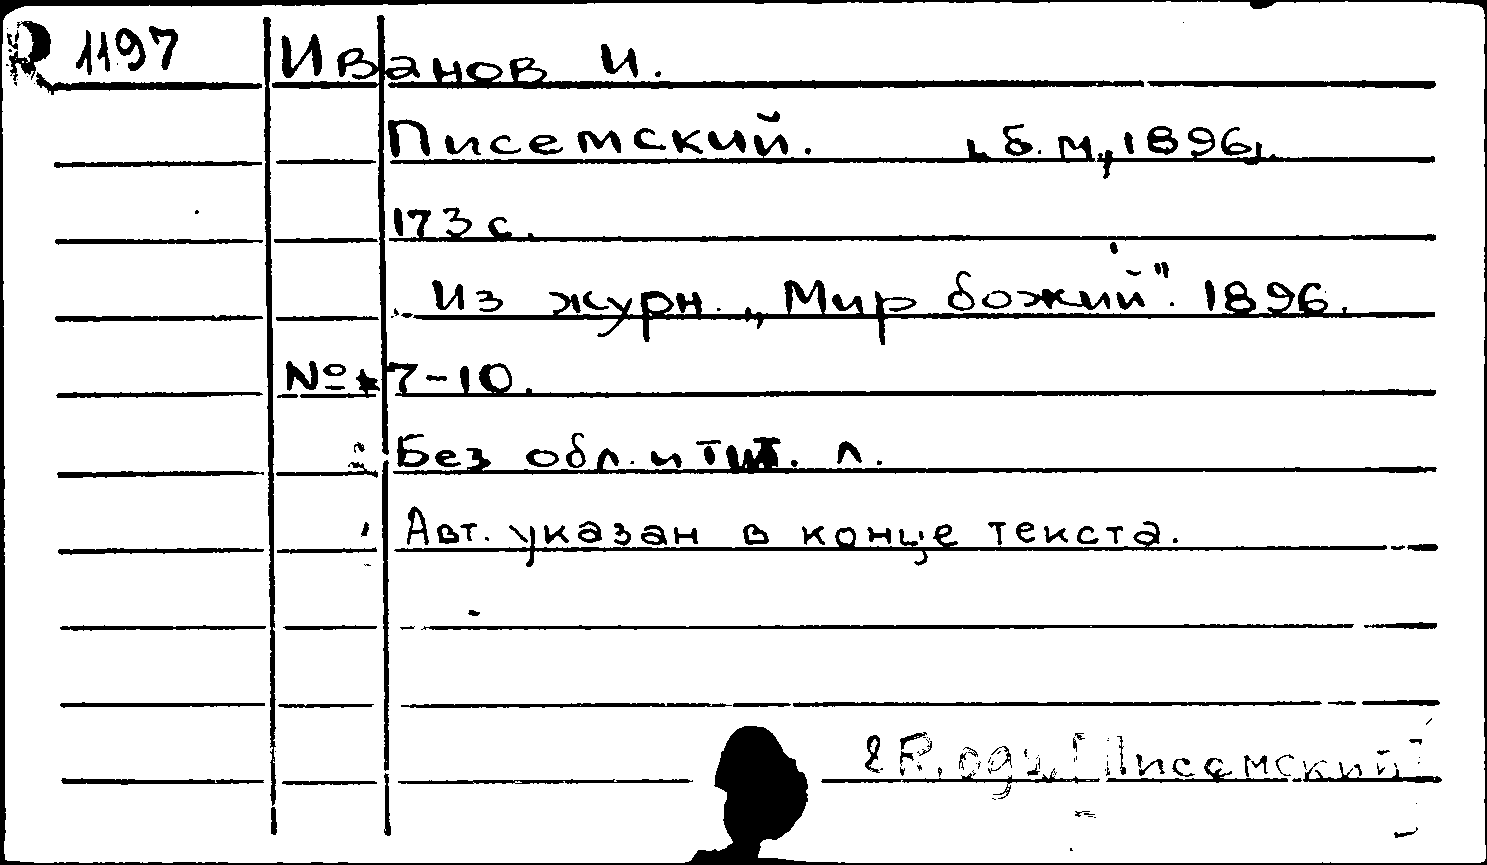 R 1197 Иванов И.
Писемский. [б.м., 1896].
173 с.
Из журн. „Мир божий". 1896.
№ 7-10.
Без обл. и тит. л.
Авт. указан в конце текста.
[Писемский]